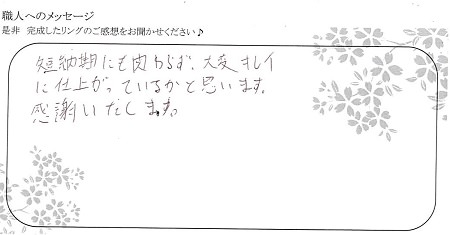 職人へのメッセージ
是非 完成したリングのご感想をお聞かせください♪
短納期にも関わらず、大変キレイ
に仕上がっているかと思います。
感謝いたします。